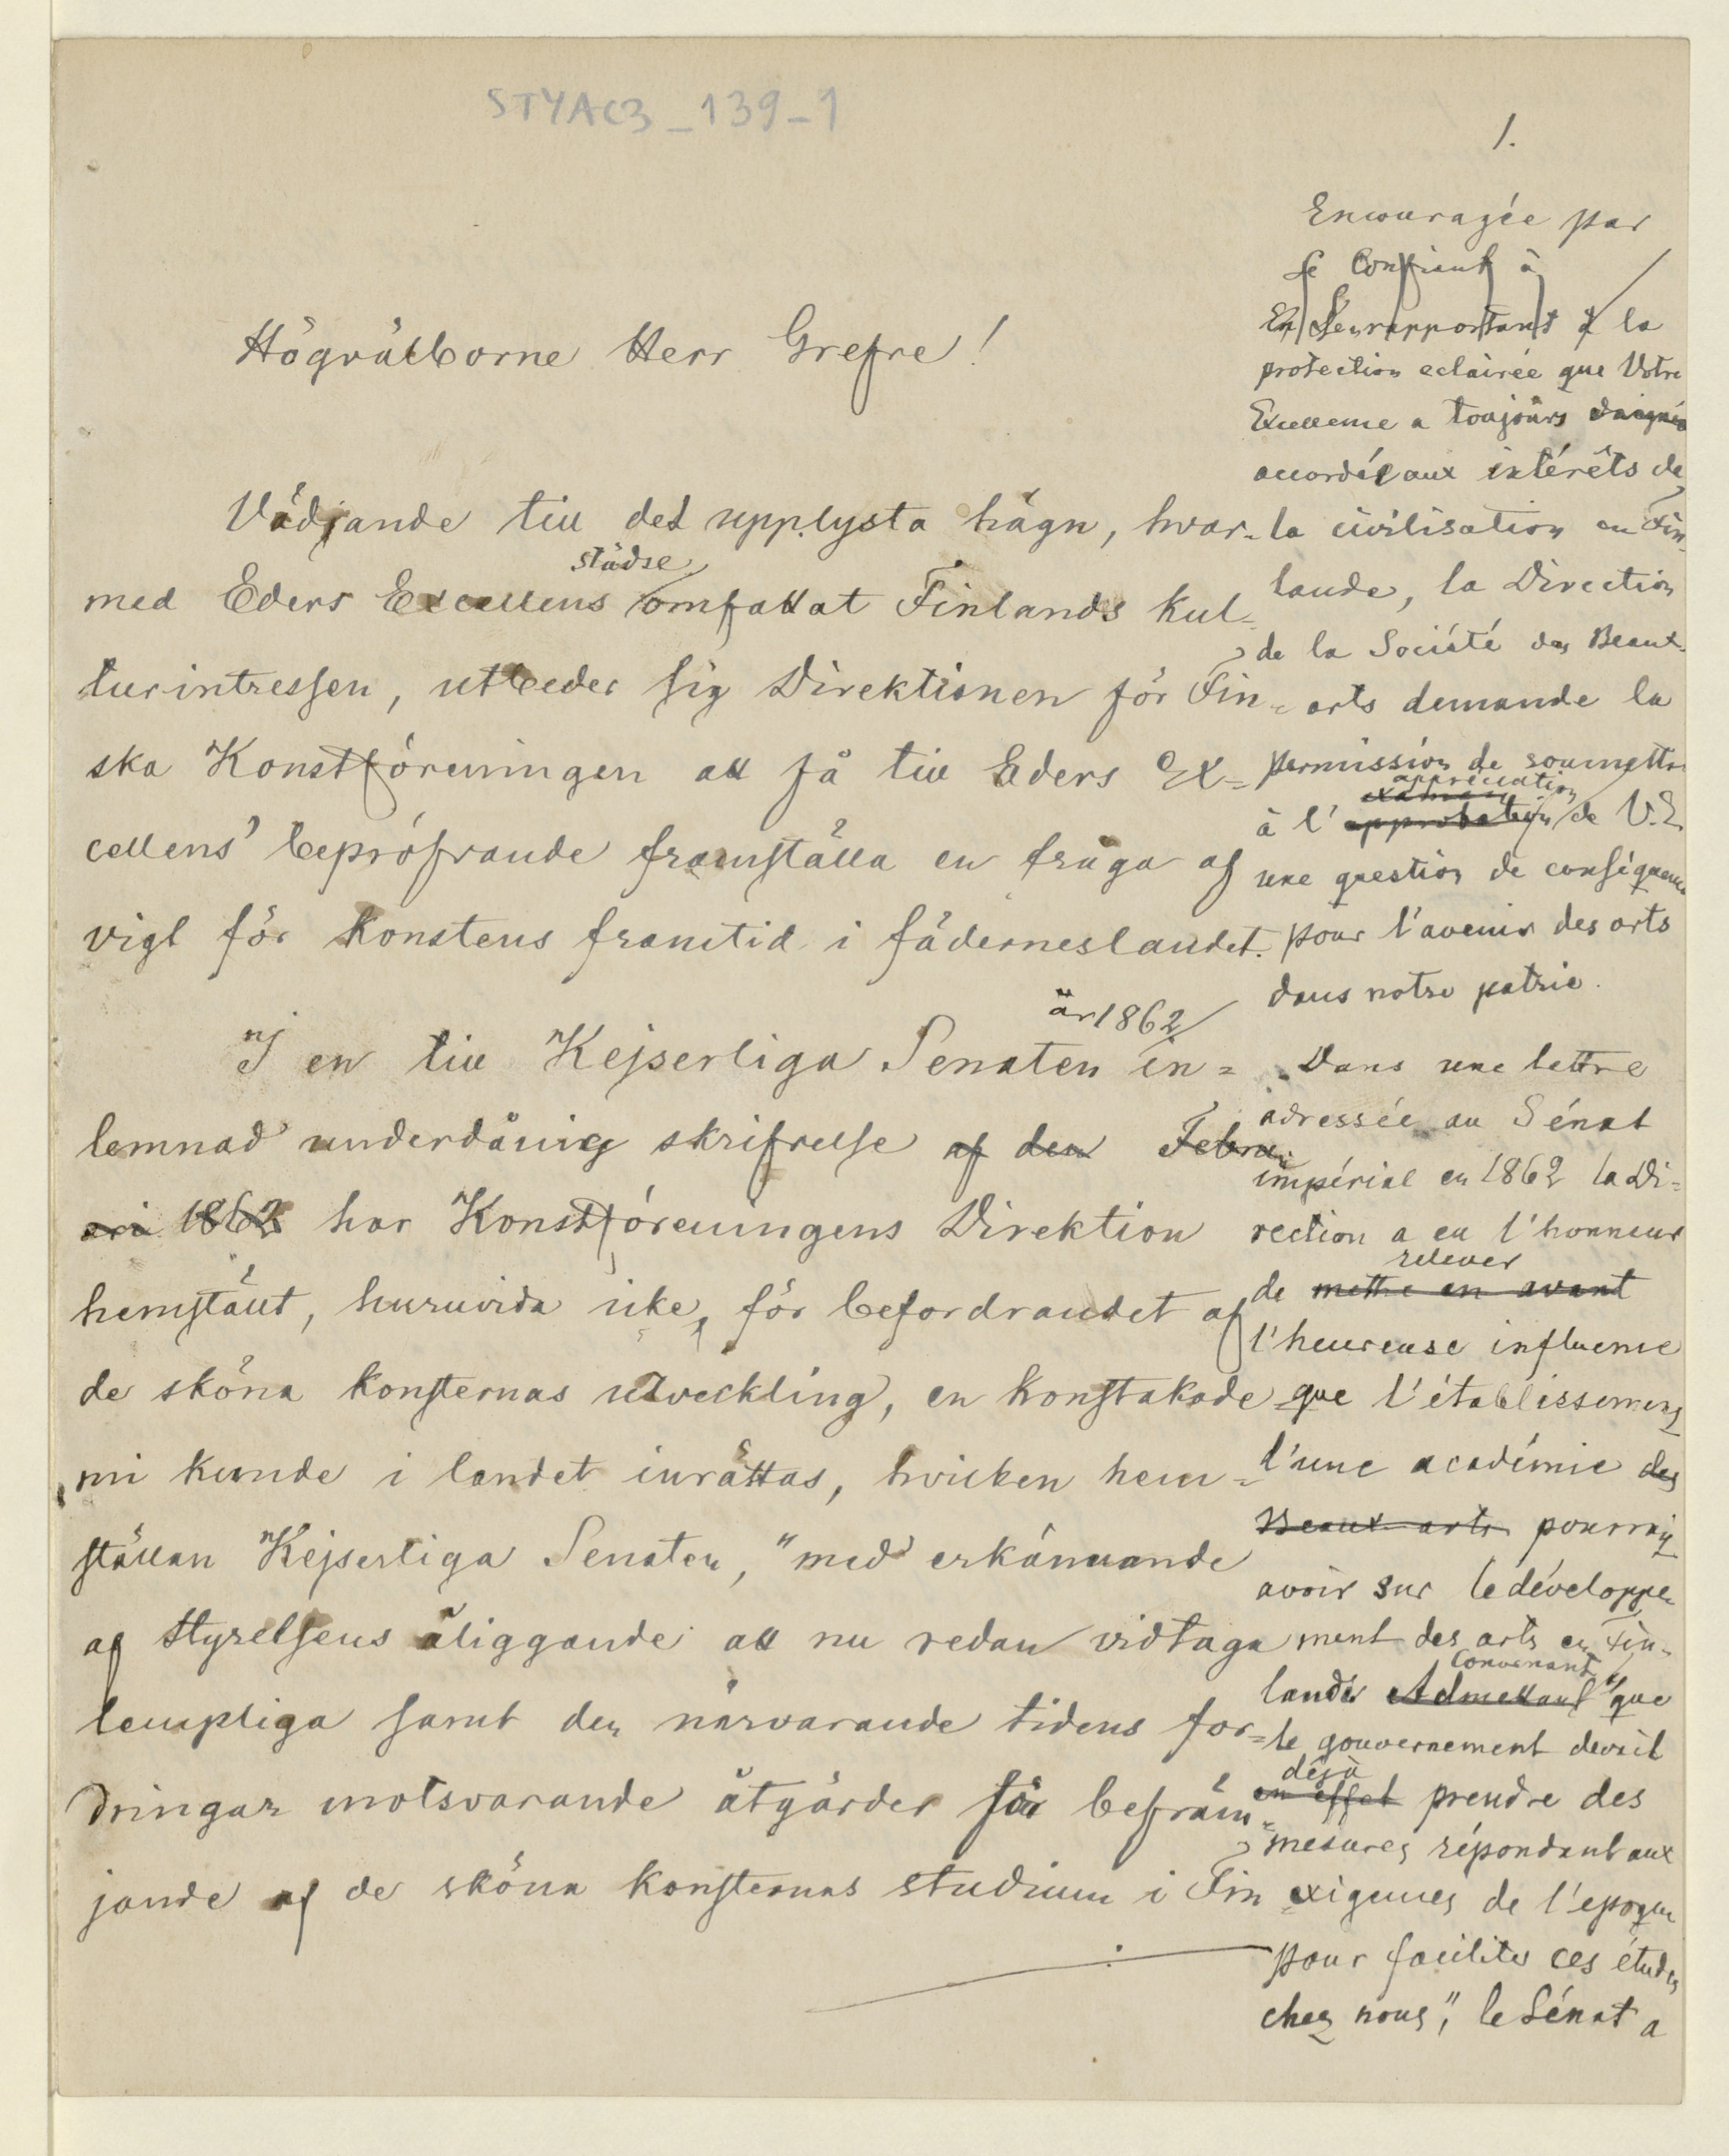 STYAC3_139-1
1.
Högvälborne Herr Grefve!
Vädjande till det upplysta hägn, hvar-
städse
med Eders Excellens omfattat Finlands kul-
turintressen, utbeder sig Direktionen för Fin-
ska Konstföreningen att få till Eders Ex-
cellens' bepröfvande framställa en fråga af
vigt för konstens framtid i fäderneslandet.
år 1862
I en till Kejserliga Senaten in-
lemnad underdånig skrifvelse af den Febru-
ari 1862 har Konstföreningens Direktion
hemställt, huruvida icke, för befordrandet af
de sköna konsternas utveckling, en konstakade-
mi kunde i landet inrättas, hvilken hem-
ställan Kejserliga Senaten, "med erkännande
af styrelsens åliggande att nu redan vidtaga
lempliga samt den närvarande tidens for-
dringar motsvarande åtgärder för befräm-
jande af de sköna konsternas studium i Fin
Encouragée par
Se Confiant à
En rapportant à la
protection eclairée que Votre
Excellence a toujours daigné
accordé aux intérêts de
la civilisation en Fin-
lande, la Direction
de la Société des Beaux-
arts demande la
permission de soumettre
appréciation
examen
à l'approbation de V.E.
une question de conséquence
pour l'avenir des arts
dans notre patrie.
Dans une lettre
adressée au Sénat
impérial en 1862 la Di-
rection a eu l'honneur
relever
de mettre en avant
l'heureuse influence
que l'établissement
d'une académie des
Beaux-arts pourrait
avoir sur le développe
ment des arts en Fin-
Convenant
lande. Admettant "que
le gouvernement devait
déjà
en effet prendre des
mesures répondant aux
exigences de l'epoque
pour faciliter ces études
chez nous", le Sénat a